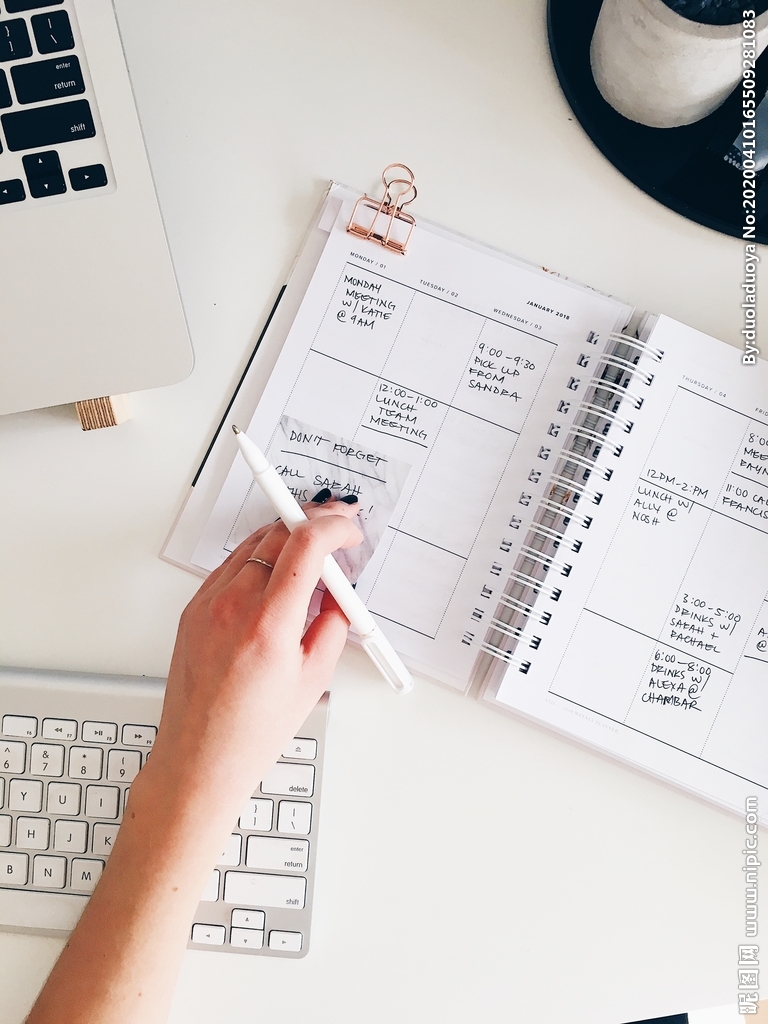 MONDAY / 01
TUESDAY / 02
JANUARY 2018
WEDNESDAY / 03
MONDAY
MEETING
W/ KATIE
@ 9AM
9:00-9:30
PICK UP
FROM
SANDRA
12:00-1:00
LUNCH
TEAM
MEETING
DON'T FORGET
CALL SARAH
THURSDAY / 04
12PM-2:PM
LUNCH W/
ALLY @
NOSH
8:0
MEE
11:00 CA
FRANCIS
3:00-5:00
DRINKS W/
SARAH +
RACHAEL
6:00-8:00
DRINKS W/
ALEXA @
CHAMBAR
enter
return
shift
F5
F6
F7
F8
F9
^ 6
& 7
* 8
( 9
Y U I
H J K
B N M
delete
} ]
| \
enter
return
shift
By:duoladuoya No:20200410165509281083
昵图网 www.nipic.com